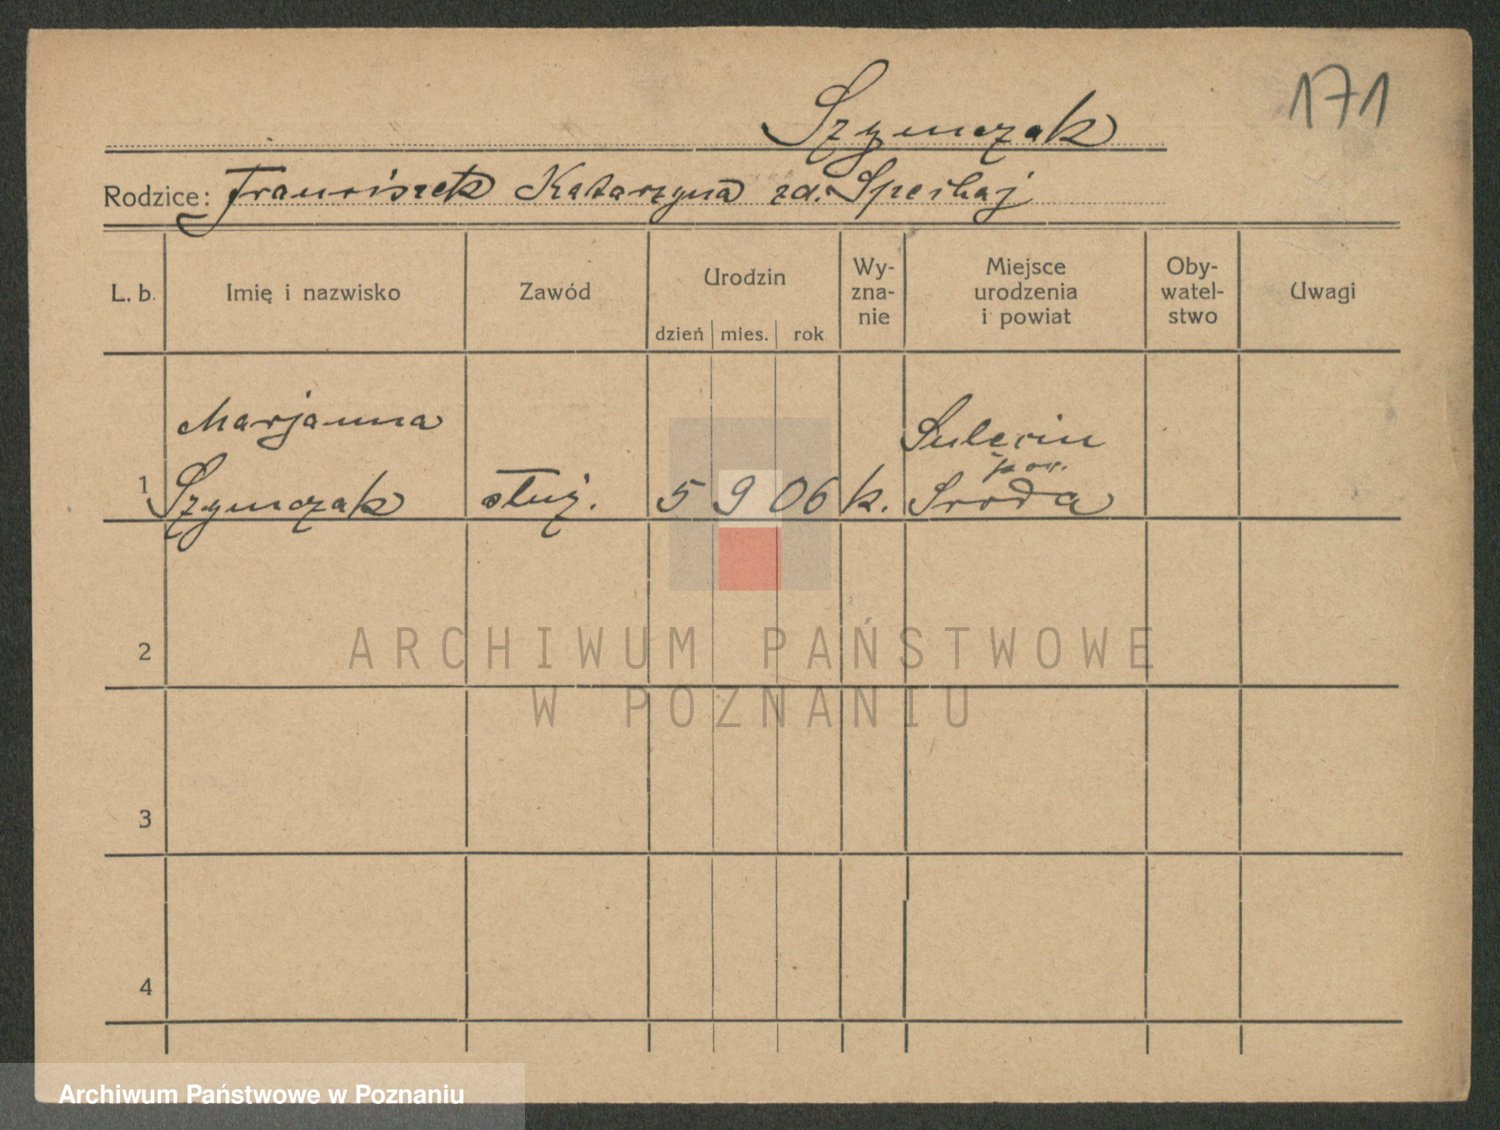 171
Szymczak
Rodzice: Franciszek Katarzyna zd.
L. b. Imię i nazwisko Zawód Urodzin dzień mies. rok Wy-zna-nie Miejsce urodzenia i powiat Oby-watel-stwo Uwagi
Marjanna Sulęcin
pow.
1 Szymczak służ. 5 9 06 k. Środa
2
ARCHIWUM PAŃSTWOWE
W POZNANIU
3
4
Archiwum Państwowe w Poznaniu